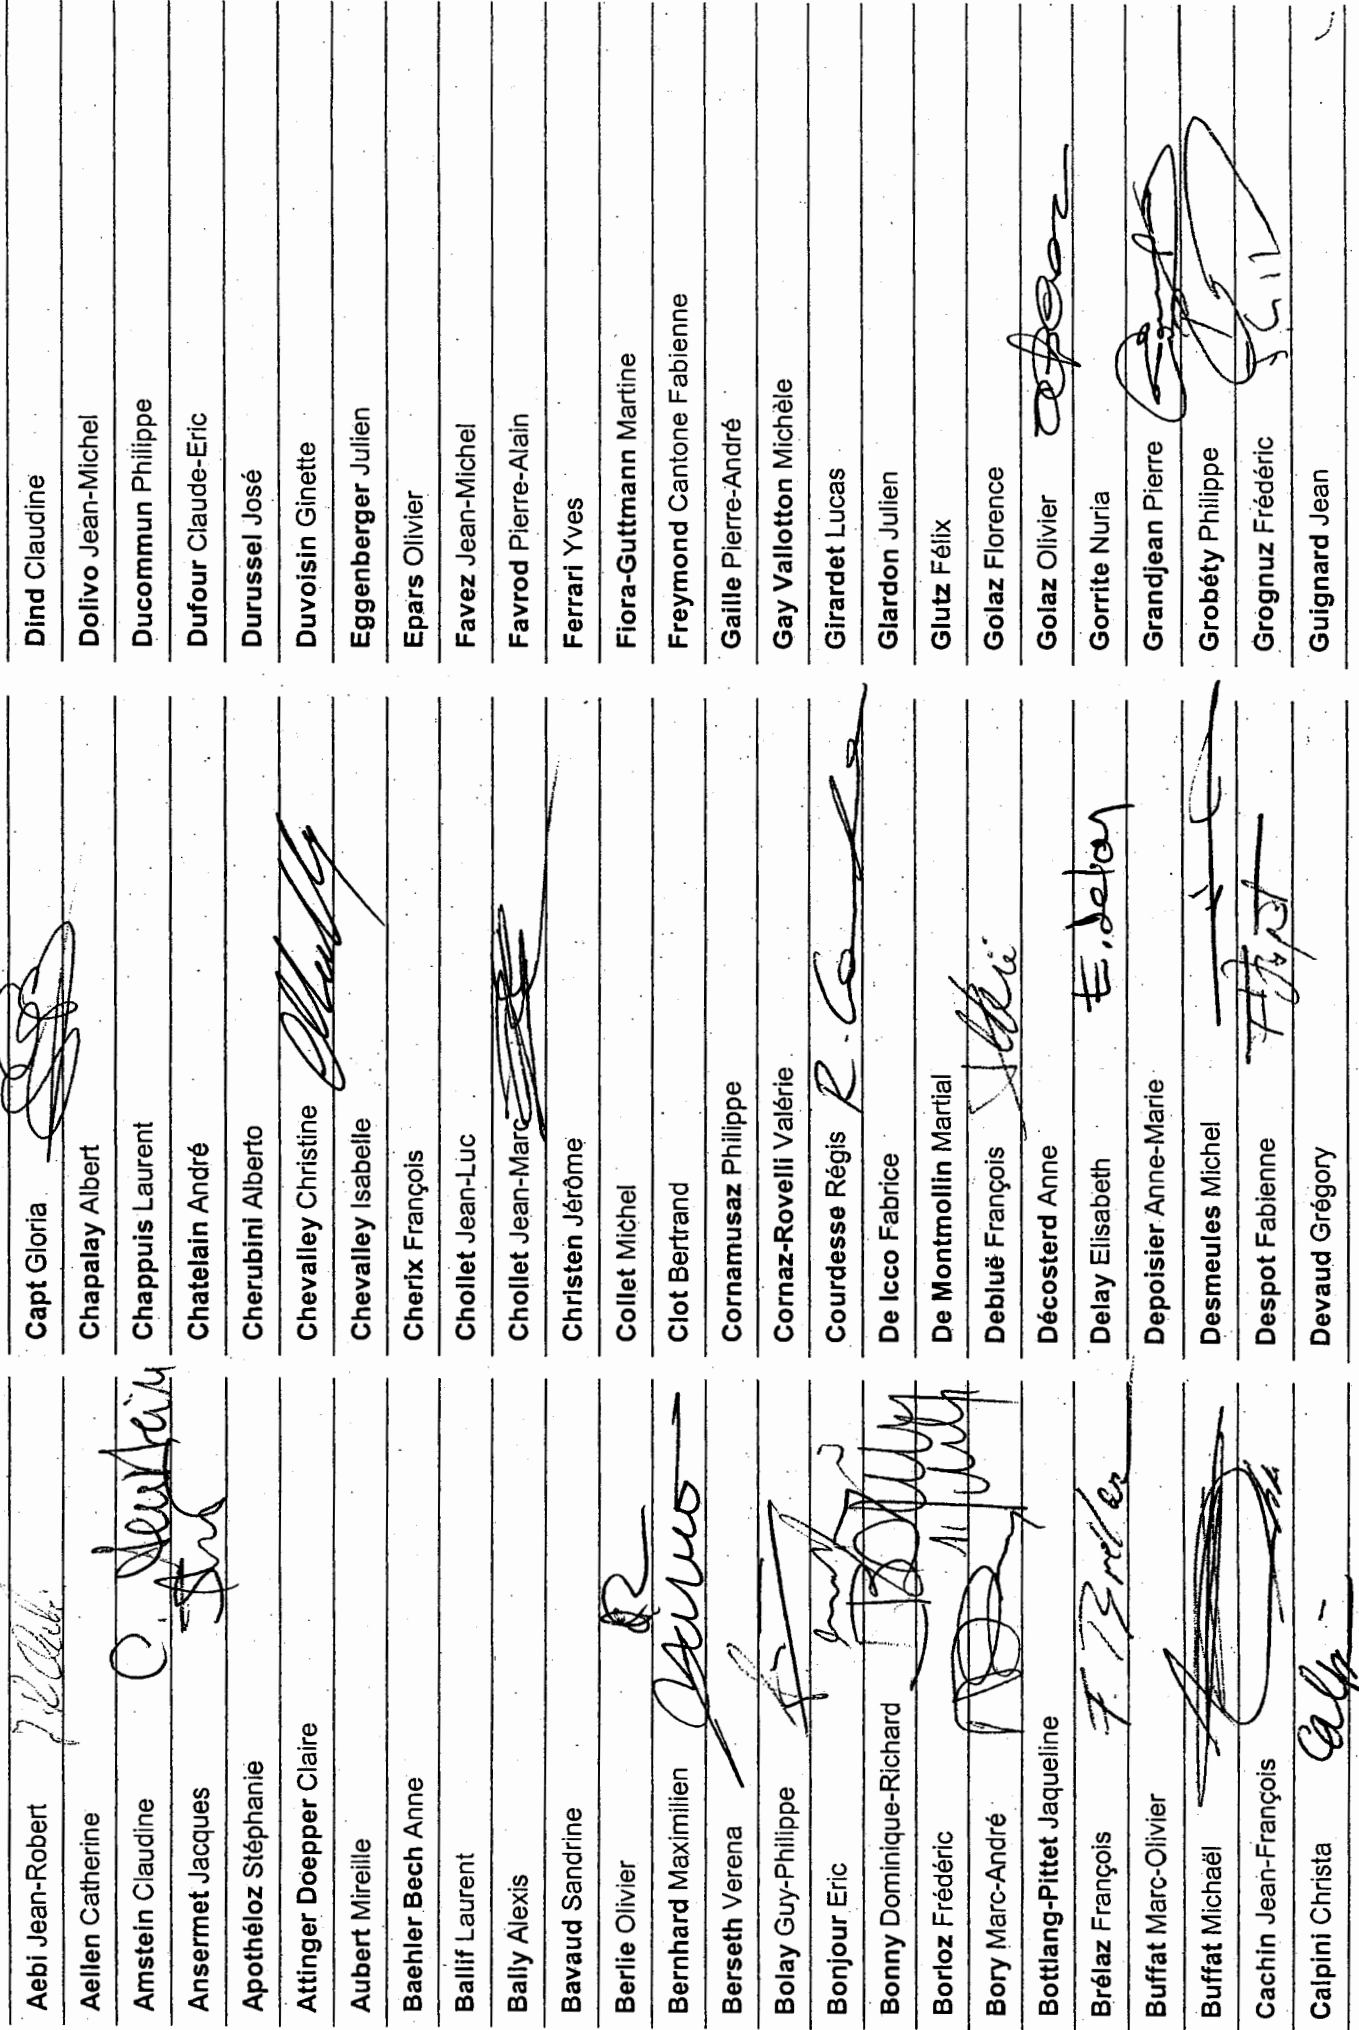 Aebi Jean-Robert
Aellen Catherine
Amstein Claudine
Ansermet Jacques
Apothéloz Stéphanie
Attinger Doepper Claire
Aubert Mireille
Baehler Bech Anne
Ballif Laurent
Bally Alexis
Bavaud Sandrine
Berlie Olivier
Bernhard Maximilien
Berseth Verena
Bolay Guy-Philippe
Bonjour Eric
Bonny Dominique-Richard
Borloz Frédéric
Bory Marc-André
Bottlang-Pittet Jaqueline
Brélaz François
Buffat Marc-Olivier
Buffat Michaël
Cachin Jean-François
Calpini Christa
Capt Gloria
Chapalay Albert
Chappuis Laurent
Chatelain André
Cherubini Alberto
Chevalley Christine
Chevalley Isabelle
Cherix François
Chollet Jean-Luc
Chollet Jean-Marc
Christen Jérôme
Collet Michel
Clot Bertrand
Cornamusaz Philippe
Cornaz-Rovelli Valérie
Courdesse Régis
De Icco Fabrice
De Montmollin Martial
Debluë François
Décosterd Anne
Delay Elisabeth E. Delay
Depoisier Anne-Marie
Desmeules Michel
Despot Fabienne
Devaud Grégory
Dind Claudine
Dolivo Jean-Michel
Ducommun Philippe
Dufour Claude-Eric
Durussel José
Duvoisin Ginette
Eggenberger Julien
Epars Olivier
Favez Jean-Michel
Favrod Pierre-Alain
Ferrari Yves
Fiora-Guttmann Martine
Freymond Cantone Fabienne
Gaille Pierre-André
Gay Vallotton Michèle
Girardet Lucas
Glardon Julien
Glutz Félix
Golaz Florence
Golaz Olivier
Gorrite Nuria
Grandjean Pierre
Grobéty Philippe
Grognuz Frédéric
Guignard Jean